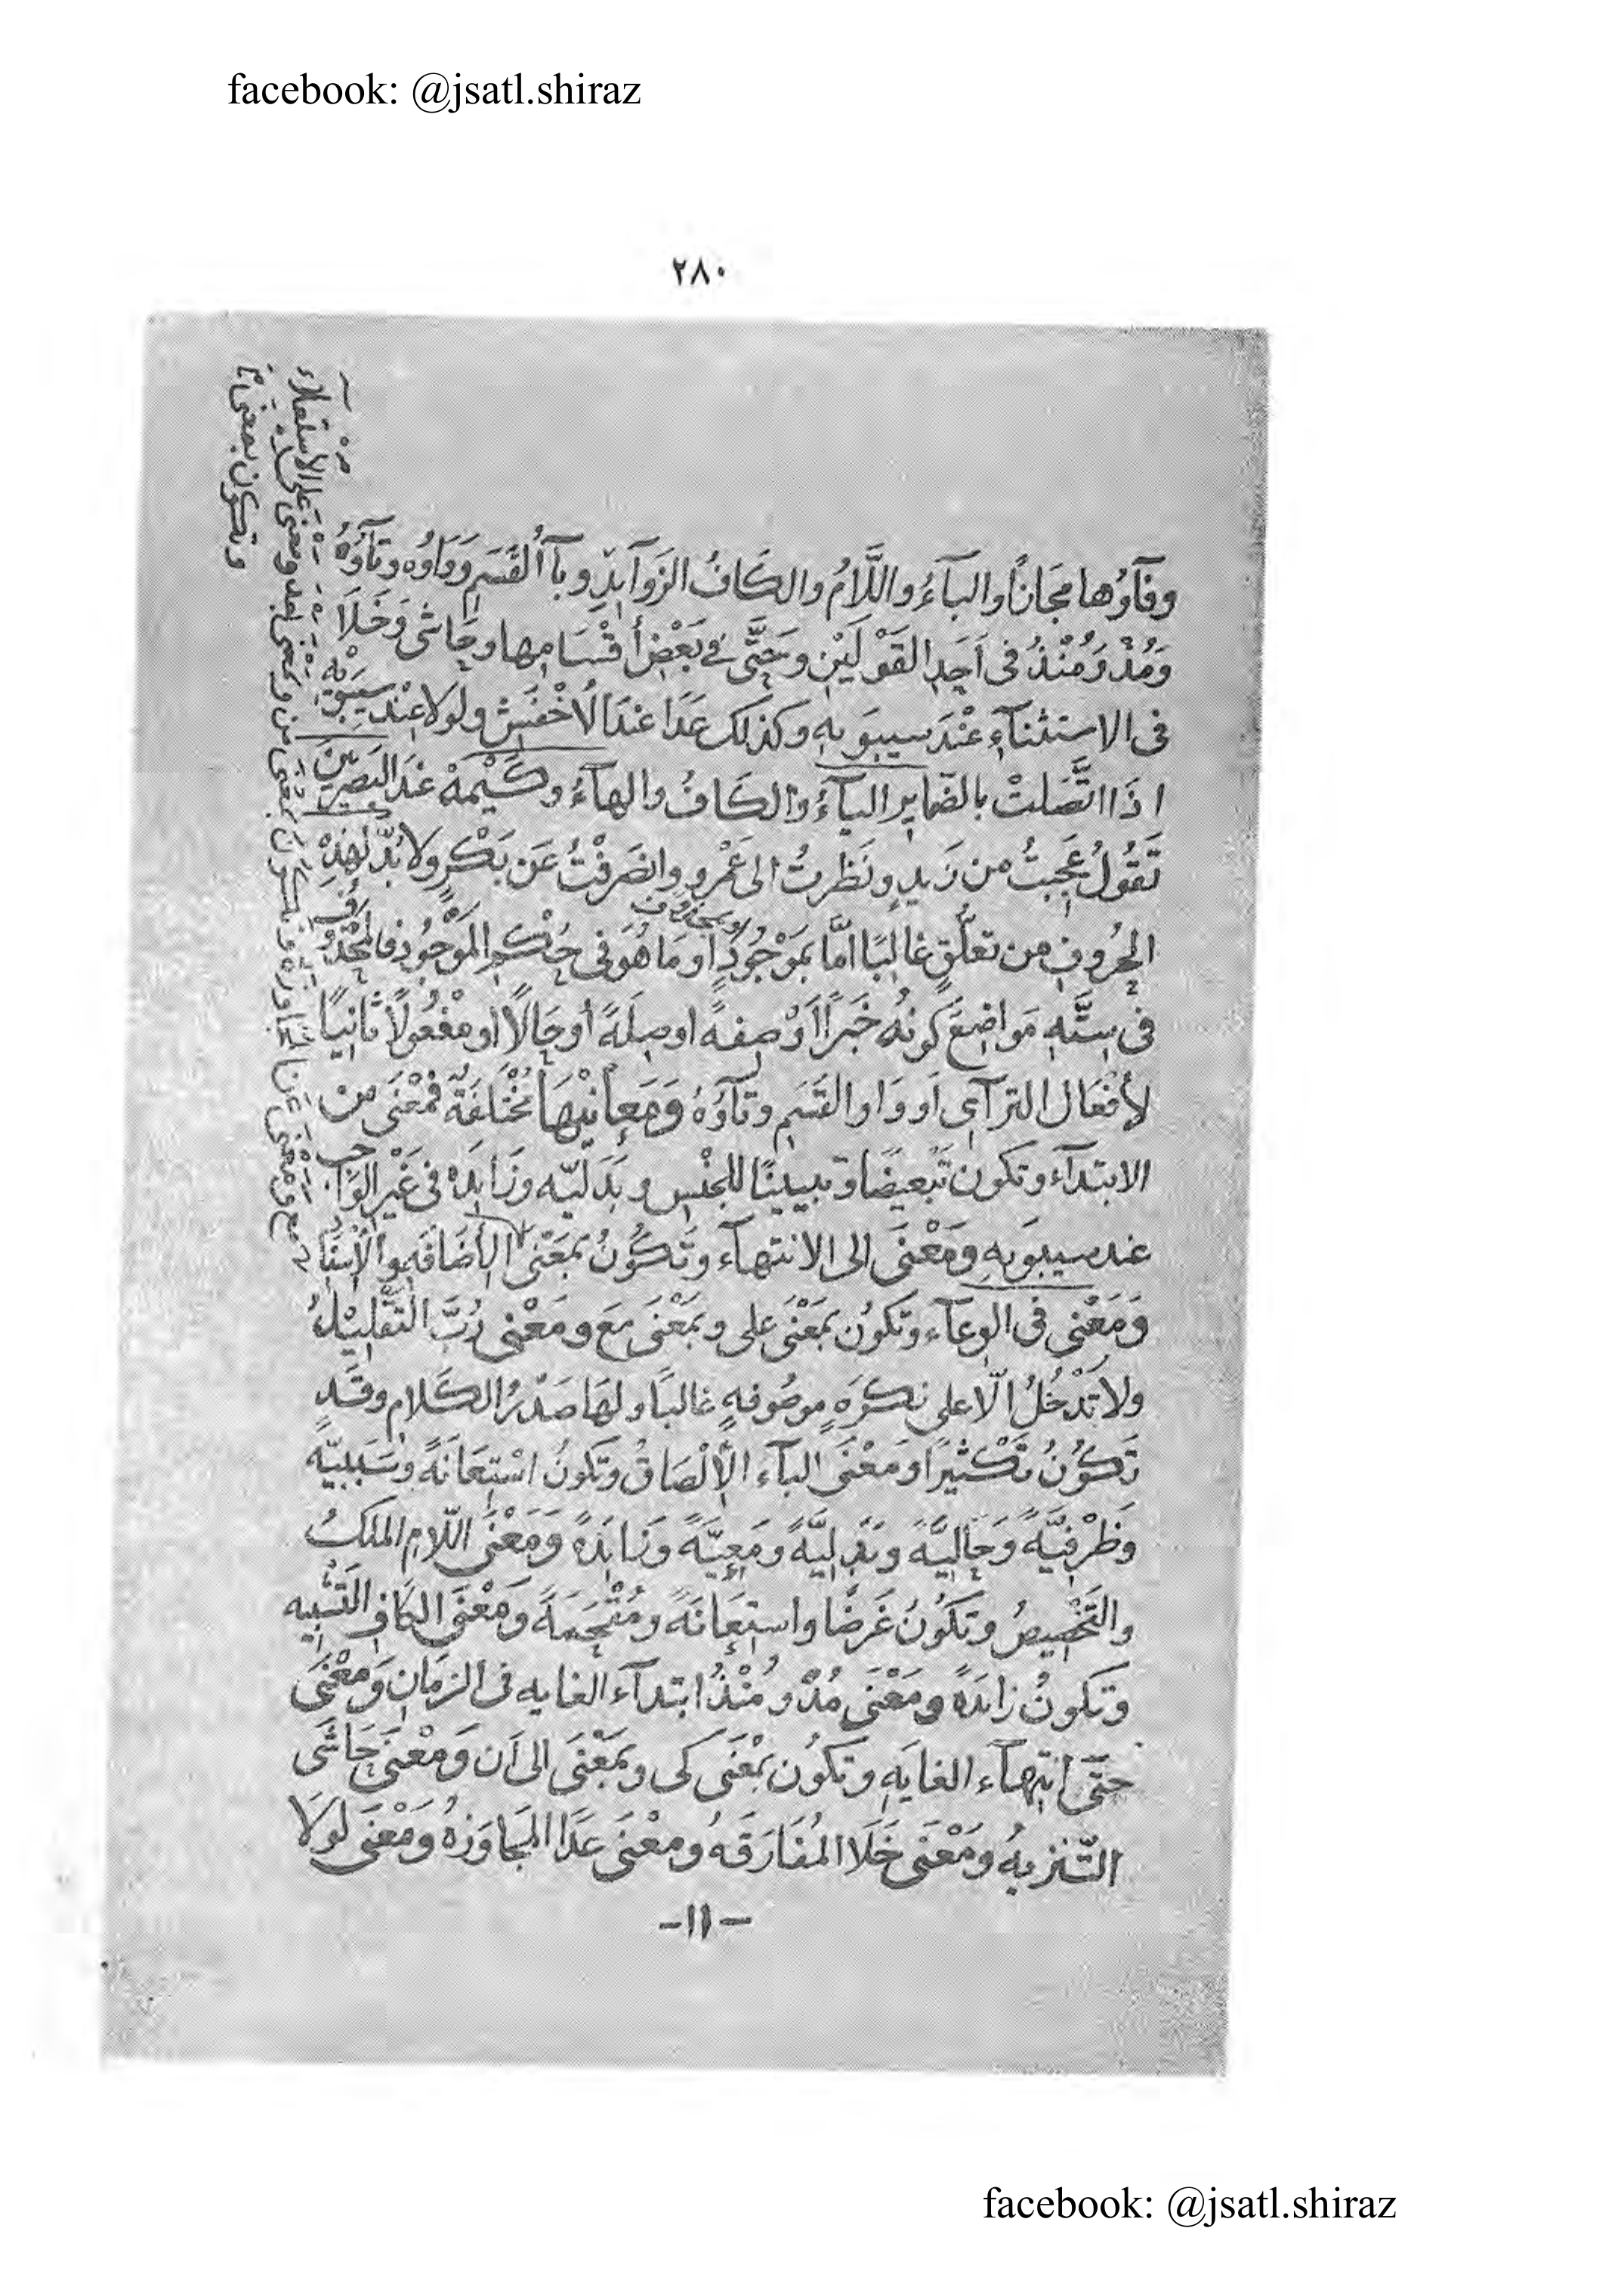 facebook: @jsatl.shiraz
٢٨٠
وفآؤها مجَانًا والبآءُ واللَّامُ والكَافُ الزوآيدِ وبآ أُلقَسَمِ وَوَاوُه وتآؤُهُ
وَمُذْ وَمُنْذُ فى اَحَدِ القَوْلَيْنِ وحَتَّى فى بَعْضِ أقْسَامِها وحَاشى وَخَلَا
فى الاستثنآءِ عنْدَ سيبوَيهِ وكذلك عَدَا عندَ الُاخْفَشِ ولولا عِنْد سيبَوَيْه
اذَا اتَّصَلتْ بالضّمايرِ اليآءُ والكَافُ والهآءُ وكَيْمَهْ عَنْدَ البَصريين
تَقُولُ عَجِبتُ من زَيدٍ ونَظرتُ الى عَمْرٍو وانصَرفْتُ عَن بَكْرٍ ولا بُدَّ لهذِهْ
الحُروفِ من تعلّقٍ غالبًا امَّا بمَوْجُودٍ او محذوف اومَا هُوَ فى حُكْمِ المَوْجُودِ فالمَحْذُوفُ
فى ستَّهِ مَواضِعَ كونُه خَبَراً اَوْ صِفهً اوصِلَةً أوحَالًا او مفعُولاً ثانيًا
لأفْعَال الترآى اَو وَاو القَسَمِ وتآؤهُ وَمَعَانيْهَا مُخْتَلفَةٌ فمَعْنَى مِن
الابتدآء وتكون تَبْعيضًا وتبيينًا للجنْسِ وبَدَليّه وزَايدَه فى غَيْرِ الوَاجب
عند سيبوَيهِ ومَعْنَى الى الانتهآء وتَكُوُنُ بمَعْنَى الأضَافَهِ
وَمَعْنى فى الوعآء وتكونُ بمَعْنَى على وبمَعْنَى مَعَ ومَعْنى رُبَّ التَقْليْلُ
ولا تَدْخُلُ الّا على نكرَهٍ موصُوفهٍ غالبًا ولهَا صَدْرُ الكَلام وقَد
تَكوُنُ تكْثيرًا ومَعْنَى البآء الإلْصَاقُ وتكونُ اسْتِعَانَةً وسَبَبيّه
وَظرْفيَّهً وَحَاليَّهً وبَدَليَّهً ومَعيَّه وزايدَهً وَمَعْنَى اللّامِ الملكُ
والتَخْصيصُ وتكوُنُ غَرضًا واستِعَانَةً ومُقْحَمَهً ومَعْنَى الكَافِ التَشْبيه
وتكونُ زايدَهً ومَعْنَى مُذْ ومُنْذُ ابتدآءَ الغايه فى الزمَانِ وَمعْنَى
حتّى انتهآء الغايَهِ وتكونُ بمْعَنى كى وبمَعْنَى الى اَن وَمعْنَى حَاشَى
التّنزيهُ ومَعْنَى خَلَا المُفَارَقهُ ومعْنَى عَدَا المجَاوَزهُ ومَعْنَى لولَا
-١١-
facebook: @jsatl.shiraz